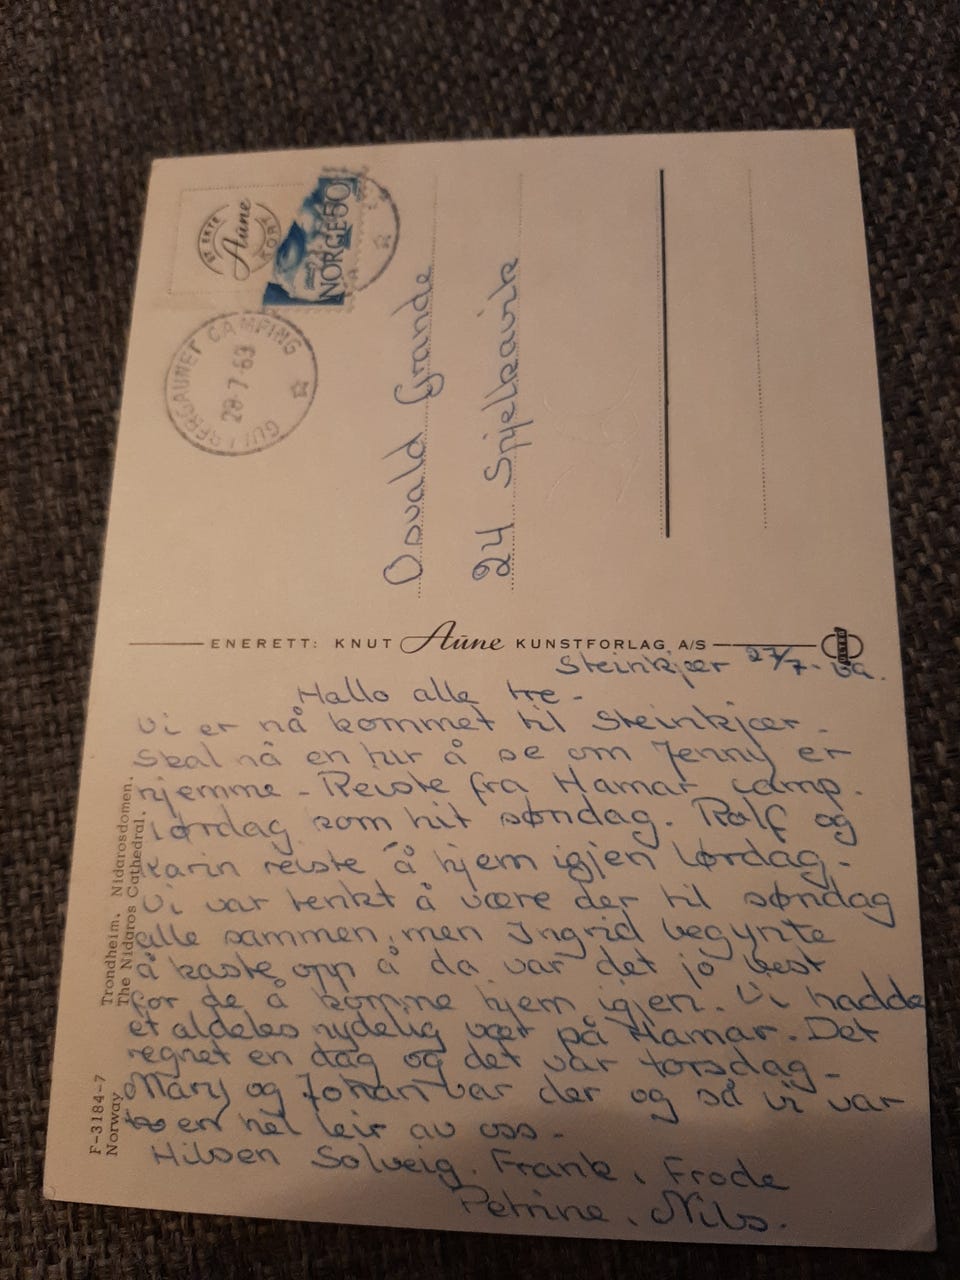 DE EKTE
Aune
KORT
NORGE 50
GULLBERGAUNET CAMPING
28-7-69
Osvald Grande
24 Spjelkavik
ENERETT: KNUT Aune KUNSTFORLAG A/S
Steinkjær 27/7-69.
Hallo alle tre -
Vi er nå kommet til Steinkjær.
Skal nå en tur å se om Jenny er
hjemme - Reiste fra Hamar camp.
lørdag kom hit søndag. Rolf og
Karin reiste å hjem igjen lørdag.
Vi var tenkt å være der til søndag
alle sammen, men Ingrid begynte
å kaste opp å da var det jo best
for de å komme hjem igjen. Vi hadde
et aldeles nydelig vær på Hamar. Det
regnet en dag og det var torsdag -
Mary og Johan var der og så vi var
en hel leir av oss -
Hilsen Solveig. Frank, Frode
Petrine, Nils.
Trondheim. Nidarosdomen.
The Nidaros Cathedral.
F-3184-7
Norway